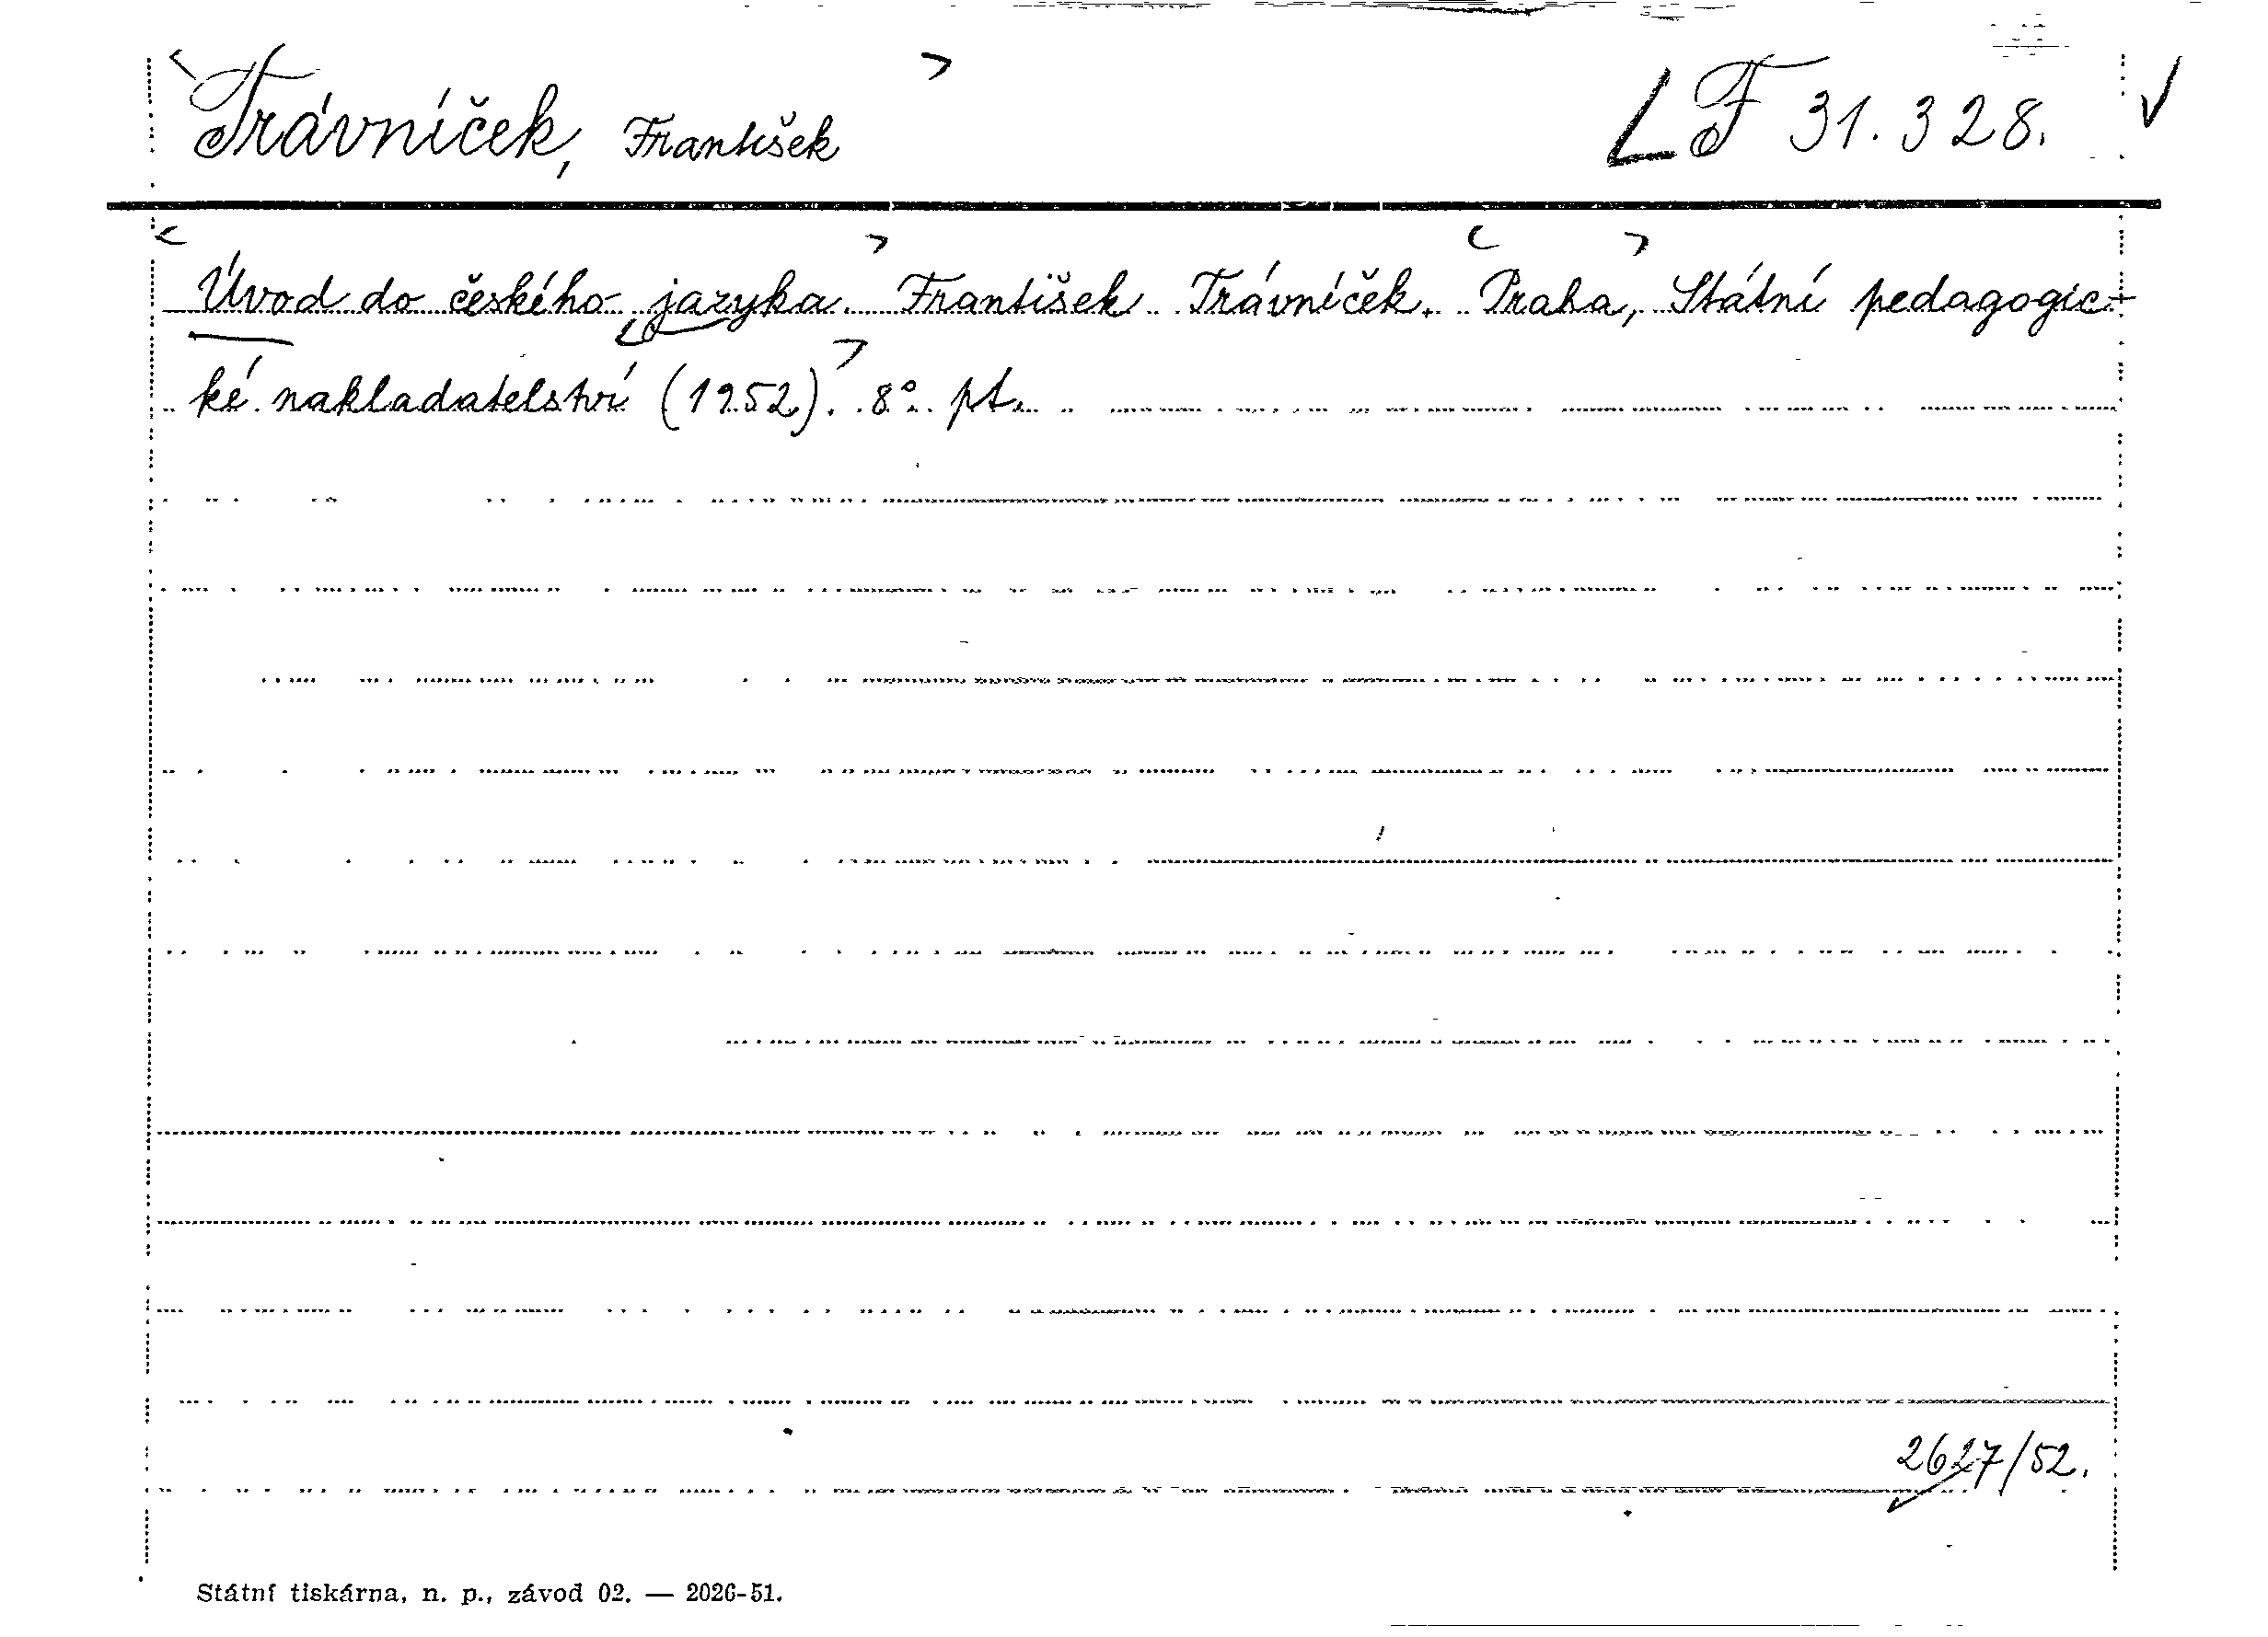 Trávníček, František LF 31.328.
Úvod do českého jazyka. František Trávníček. Praha, Státní pedagogic-
ké nakladatelství (1952). 8°. pt.
2627/52.
Státní tiskárna, n. p., závod 02. — 2026-51.